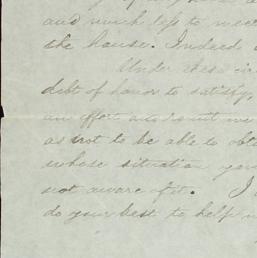 and much less to meet
the house. Indeed
Under these cir
debt of honor to satisfy,
an effort and
as not to be able to obta
whose situation you
not aware of it. I
do your best to help